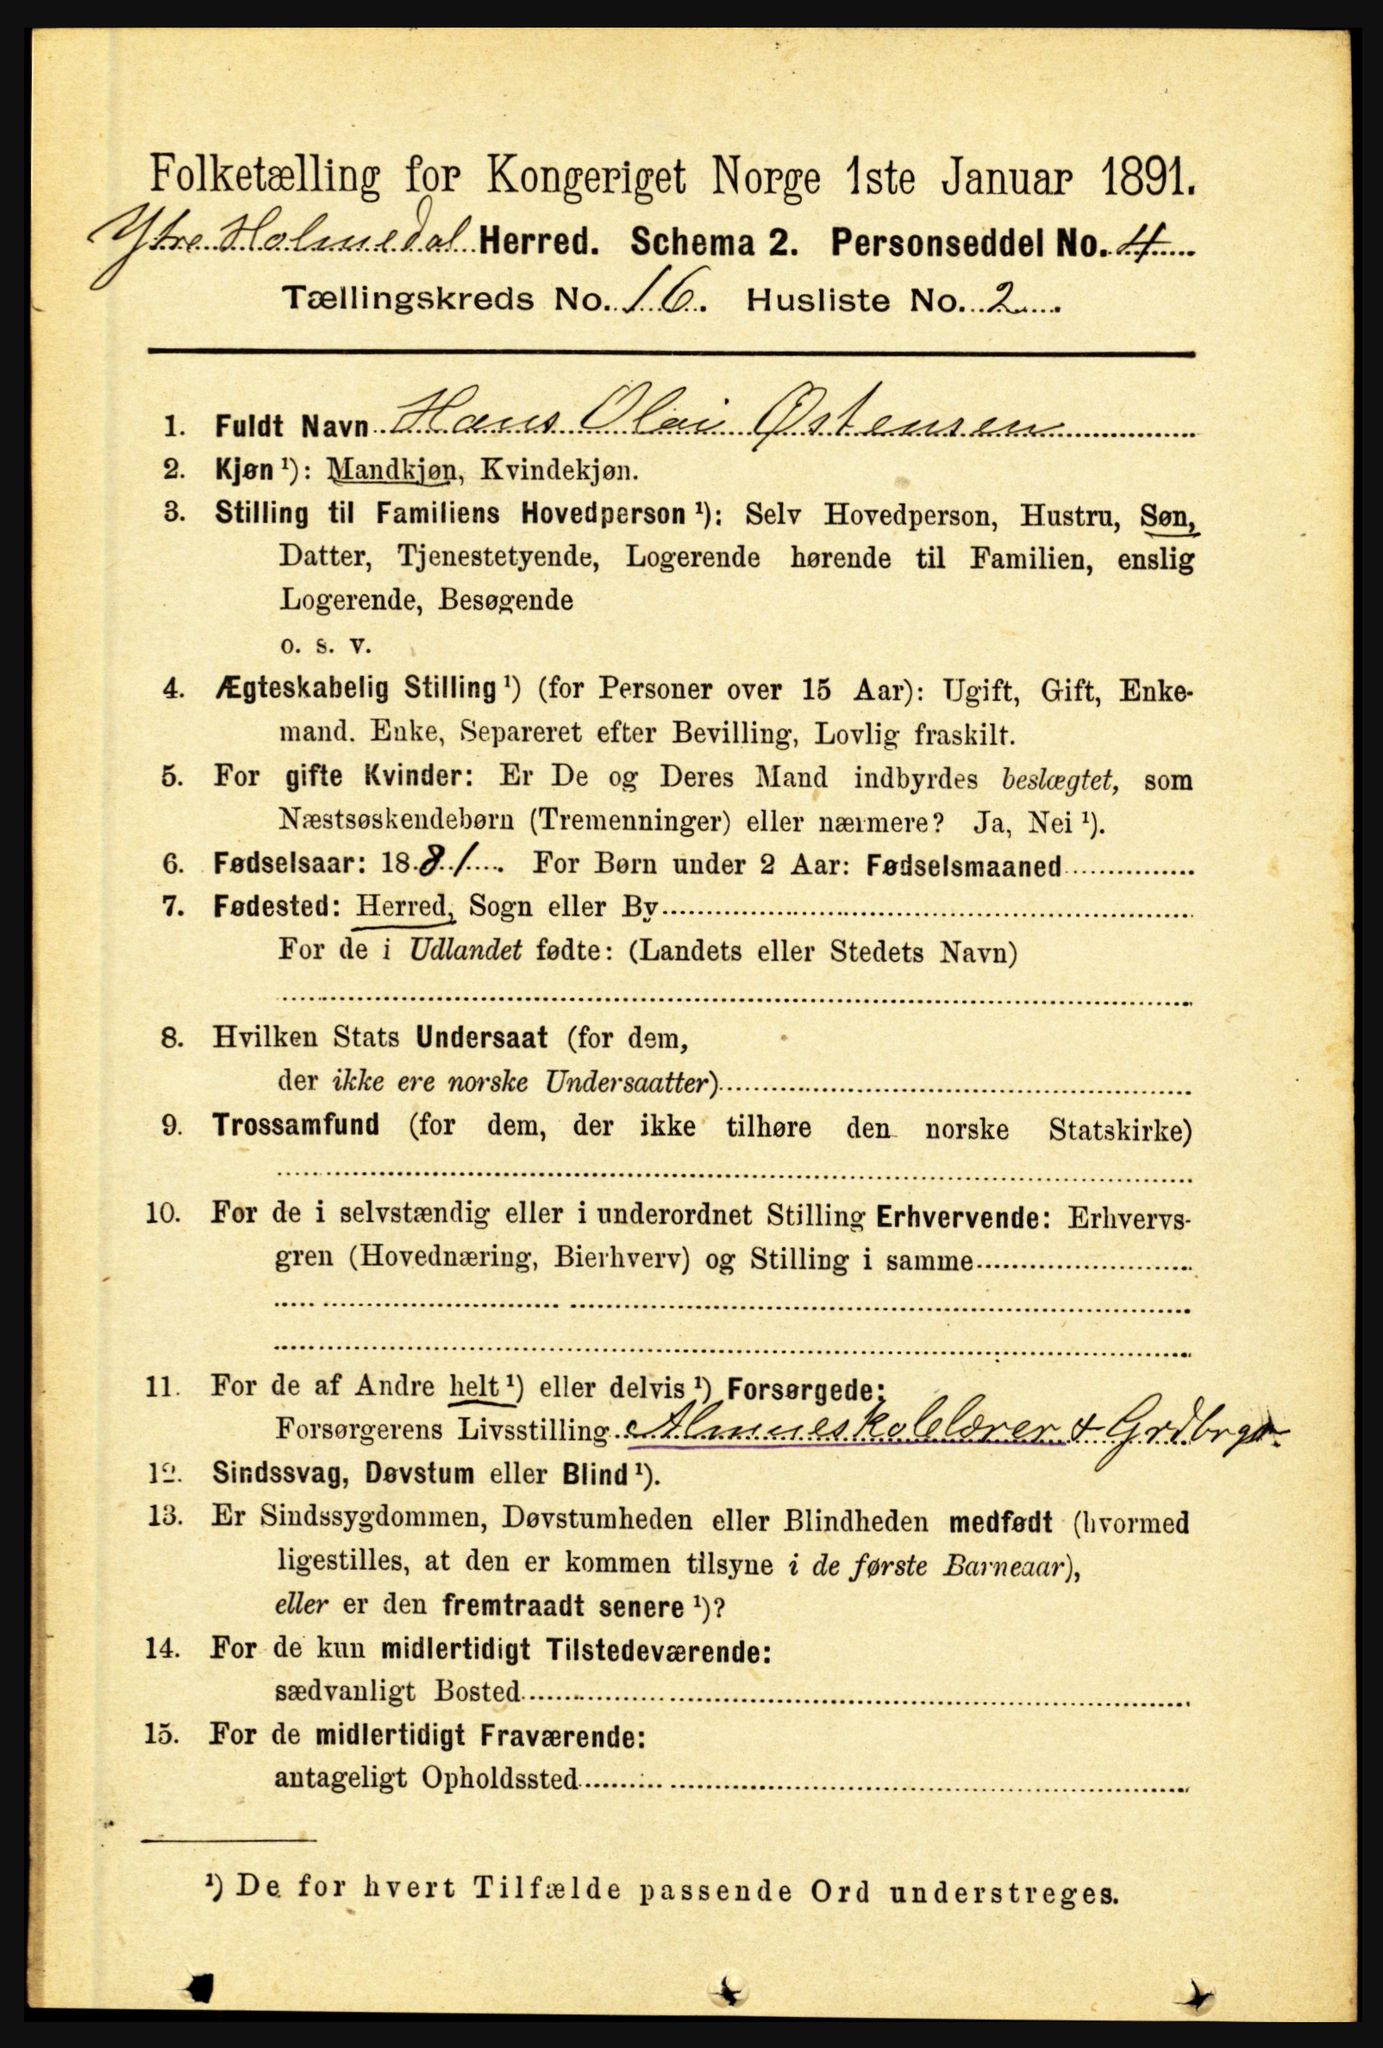 Folketælling for Kongeriget Norge 1ste Januar 1891.
Ytre Holmedal Herred. Schema 2. Personseddel No. 4
Tællingskreds No. 16. Husliste No. 2
1. Fuldt Navn Hans Olai Østensen
2. Kjøn ¹): Mandkjøn, Kvindekjøn.
3. Stilling til Familiens Hovedperson ¹): Selv Hovedperson, Hustru, Søn,
Datter, Tjenestetyende, Logerende hørende til Familien, enslig
Logerende, Besøgende
o. s. v.
4. Ægteskabelig Stilling ¹) (for Personer over 15 Aar): Ugift, Gift, Enke-
mand. Enke, Separeret efter Bevilling, Lovlig fraskilt.
5. For gifte Kvinder: Er De og Deres Mand indbyrdes beslægtet, som
Næstsøskendebørn (Tremenninger) eller nærmere? Ja, Nei ¹).
6. Fødselsaar: 1881. For Børn under 2 Aar: Fødselsmaaned
7. Fødested: Herred, Sogn eller By
For de i Udlandet fødte: (Landets eller Stedets Navn)
8. Hvilken Stats Undersaat (for dem,
der ikke ere norske Undersaatter)
9. Trossamfund (for dem, der ikke tilhøre den norske Statskirke)
10. For de i selvstændig eller i underordnet Stilling Erhvervende: Erhvervs-
gren (Hovednæring, Bierhverv) og Stilling i samme
11. For de af Andre helt ¹) eller delvis ¹) Forsørgede:
Forsørgerens Livsstilling Almueskolelærer & Grdbrgr
12. Sindssvag, Døvstum eller Blind ¹).
13. Er Sindssygdommen, Døvstumheden eller Blindheden medfødt (hvormed
ligestilles, at den er kommen tilsyne i de første Barneaar),
eller er den fremtraadt senere ¹)?
14. For de kun midlertidigt Tilstedeværende:
sædvanligt Bosted
15. For de midlertidigt Fraværende:
antageligt Opholdssted
¹) De for hvert Tilfælde passende Ord understreges.